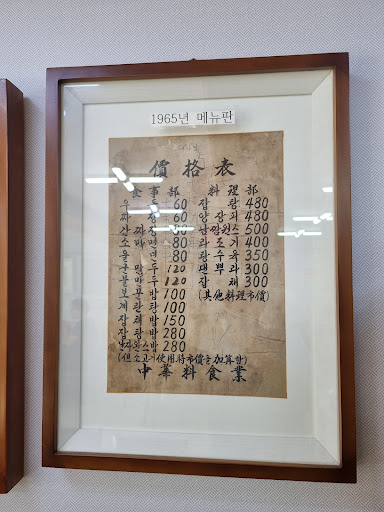 1965년 메뉴판
價格表
食事部 料理部
우동 60 잡탕 480
짜장 60 양장피 480
간짜장 80 500
80 라조기 400
울면 80 탕수육 350
군만두 120 300
물만두 120 잡채 300
밥 100 (其他料理市價)
계란탕 100
잡채밥 150
잡탕밥 280
완스밥 280
(但소고기使用時市價를加算함)
中華料食業